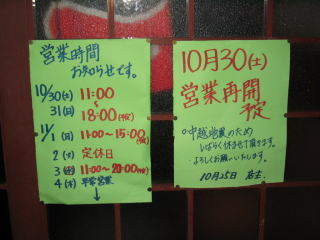 営業時間
お知らせです。
10/30(土) 11:00
~
31(日) 18:00(予定)
11/1(月) 11:00~15:00(予定)
2(火) 定休日
3(水) 11:00~20:00(予定)
4(木) 平常営業
↓
10月30(土)
営業再開
予定
○中越地震のため
しばらく休ませて頂きます。
よろしくお願いいたします。
10月25日 店主